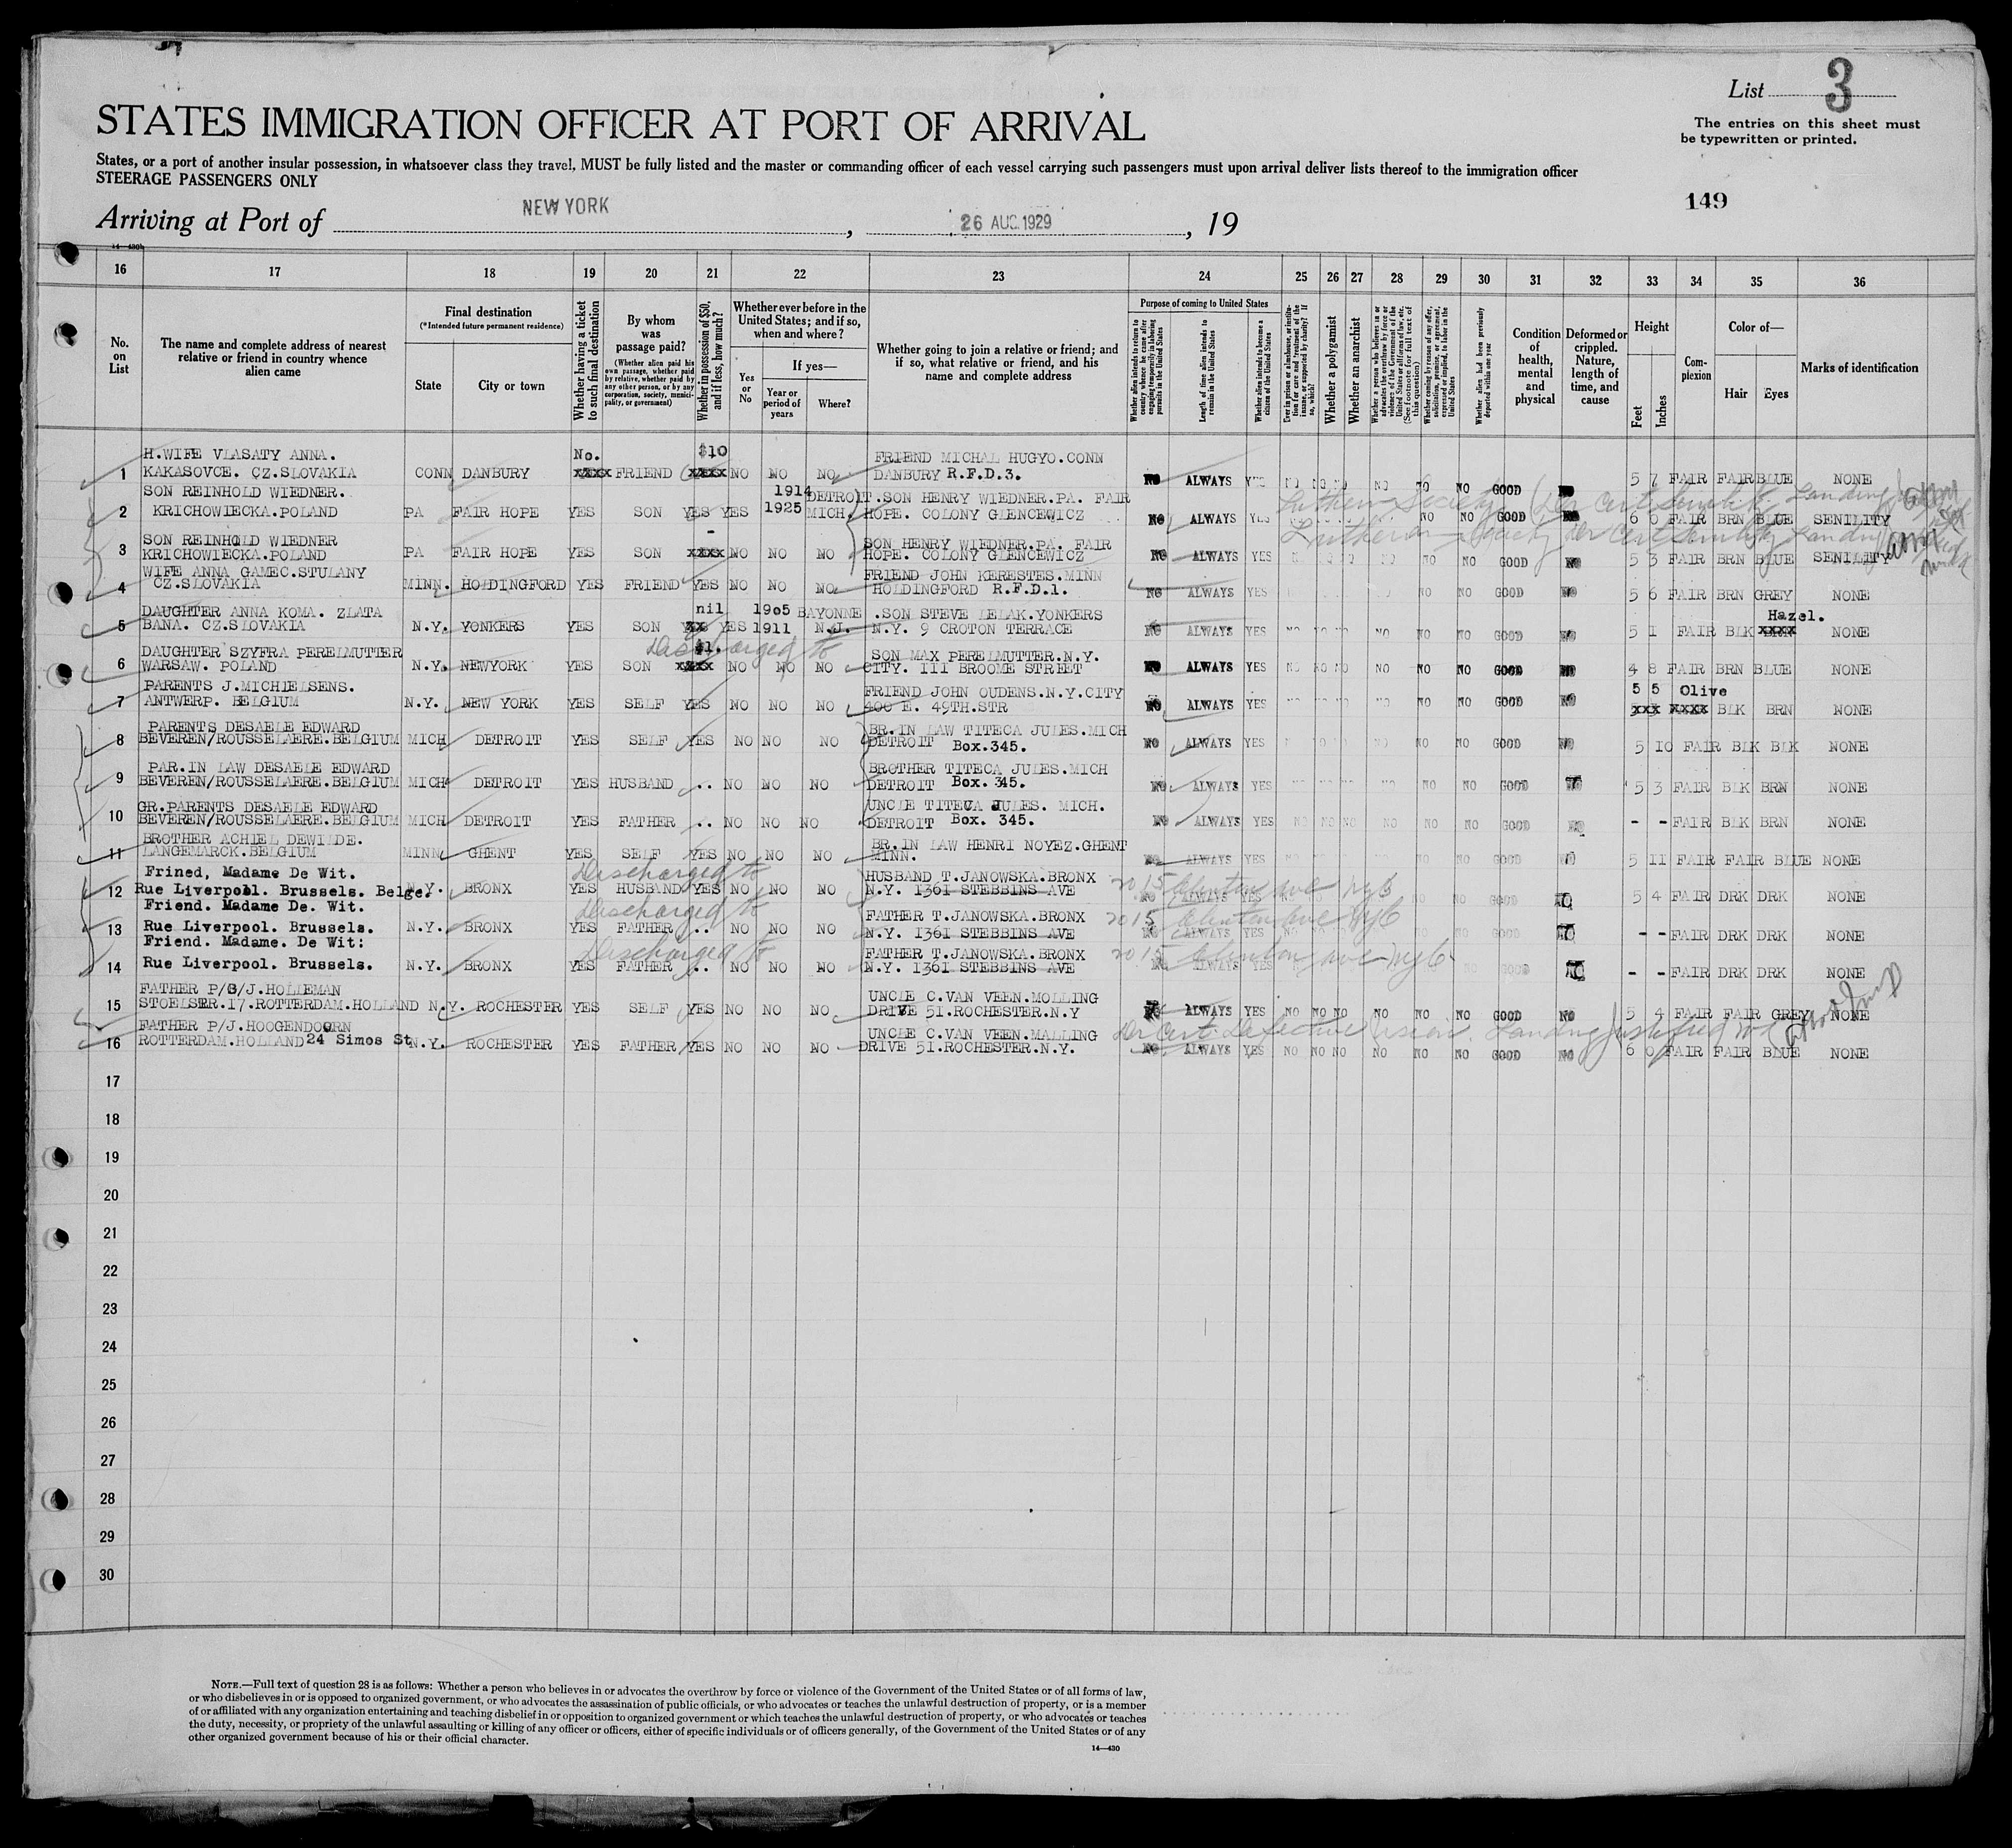 List 3
The entries on this sheet must
be typewritten or printed.
STATES IMMIGRATION OFFICER AT PORT OF ARRIVAL
States, or a port of another insular possession, in whatsoever class they travel, MUST be fully listed and the master or commanding officer of each vessel carrying such passengers must upon arrival deliver lists thereof to the immigration officer
STEERAGE PASSENGERS ONLY
149
Arriving at Port of NEW YORK, 26 AUG 1929, 19
14—430b
16 17 18 19 20 21 22 23 24 25 26 27 28 29 30 31 32 33 34 35 36
No. on List
The name and complete address of nearest relative or friend in country whence alien came
Final destination
(*Intended future permanent residence)
State
City or town
Whether having a ticket to such final destination
By whom was passage paid?
(Whether alien paid his own passage, whether paid by relative, whether paid by any other person, or by any corporation, society, municipality, or government)
Whether in possession of $50, and if less, how much?
Whether ever before in the United States; and if so, when and where?
Yes or No
If yes—
Year or period of years
Where?
Whether going to join a relative or friend; and if so, what relative or friend, and his name and complete address
Purpose of coming to United States
Whether alien intends to return to country whence he came after engaging temporarily in laboring pursuits in the United States
Length of time alien intends to remain in the United States
Whether alien intends to become a citizen of the United States
Whether a polygamist
Whether an anarchist
Whether alien had been previously deported within one year
Condition of health, mental and physical
Deformed or crippled. Nature, length of time, and cause
Height
Feet
Inches
Complexion
Color of—
Hair
Eyes
Marks of identification
H.WIFE VLASATY ANNA. No. $10 FRIEND MICHAL HUGYO.CONN
1 KAKASOVCE. CZ.SLOVAKIA CONN DANBURY xxxx FRIEND xxxx NO NO NO DANBURY R.F.D.3. NO ALWAYS YES NO NO NO NO NO NO GOOD NO 5 7 FAIR FAIR BLUE NONE
SON REINHOLD WIEDNER. 1914 DETROIT. SON HENRY WIEDNER.PA. FAIR
2 KRICHOWIECKA.POLAND PA FAIR HOPE YES SON YES YES 1925 MICH. HOPE. COLONY GLENCEWICZ NO ALWAYS YES NO NO GOOD NO 6 0 FAIR BRN BLUE SENILITY
SON REINHOLD WIEDNER - SON HENRY WIEDNER.PA. FAIR
3 KRICHOWIECKA.POLAND PA FAIR HOPE YES SON xxxx NO NO NO HOPE. COLONY GLENCEWICZ NO ALWAYS YES NO NO NO NO NO NO GOOD NO 5 3 FAIR BRN BLUE SENILITY
WIFE ANNA GAMEC.STULANY FRIEND JOHN KERESTES.MINN
4 CZ.SLOVAKIA MINN. HOLDINGFORD YES FRIEND YES NO NO NO HOLDINGFORD R.F.D.1. NO ALWAYS YES NO NO GOOD NO 5 6 FAIR BRN GREY NONE
DAUGHTER ANNA KOMA. ZLATA nil 1905 BAYONNE .SON STEVE LELAK.YONKERS Hazel.
5 BANA. CZ.SLOVAKIA N.Y. YONKERS YES SON xx YES 1911 N.J. N.Y. 9 CROTON TERRACE NO ALWAYS YES NO NO NO NO NO NO GOOD NO 5 1 FAIR BLK xxxx NONE
Discharged to
DAUGHTER SZYFRA PERELMUTTER $1. SON MAX PERELMUTTER.N.Y.
6 WARSAW. POLAND N.Y. NEWYORK YES SON xxxx NO NO NO CITY. III BROOME STREET NO ALWAYS YES NO NO NO NO NO NO GOOD NO 4 8 FAIR BRN BLUE NONE
PARENTS J.MICHIELSENS. FRIEND JOHN OUDENS.N.Y.CITY 5 5 Olive
7 ANTWERP. BELGIUM N.Y. NEW YORK YES SELF YES NO NO NO 400 E. 49TH.STR NO ALWAYS YES NO NO NO NO NO NO GOOD NO xxx xxxx BLK BRN NONE
PARENTS DESAELE EDWARD BR.IN LAW TITECA JULES.MICH
8 BEVEREN/ROUSSELAERE.BELGIUM MICH DETROIT YES SELF YES NO NO NO DETROIT Box.345. NO ALWAYS YES NO NO NO NO NO NO GOOD NO 5 10 FAIR BLK BLK NONE
PAR.IN LAW DESAELE EDWARD BROTHER TITECA JULES.MICH
9 BEVEREN/ROUSSELAERE.BELGIUM MICH DETROIT YES HUSBAND .. NO NO NO DETROIT Box. 345. NO ALWAYS YES NO NO NO NO NO NO GOOD 5 3 FAIR BLK BRN NONE
GR.PARENTS DESAELE EDWARD UNCLE TITECA JULES. MICH.
10 BEVEREN/ROUSSELAERE.BELGIUM MICH DETROIT YES FATHER .. NO NO NO DETROIT Box. 345. NO ALWAYS YES NO NO NO NO NO NO GOOD NO - - FAIR BLK BRN NONE
BROTHER ACHIEL DEWILDE. BR.IN LAW HENRI NOYEZ.GHENT
11 LANGEMARCK.BELGIUM MINN GHENT YES SELF YES NO NO NO MINN. NO ALWAYS YES NO NO NO NO NO NO GOOD NO 5 11 FAIR FAIR BLUE NONE
Frined, Madame De Wit. Discharged to HUSBAND T.JANOWSKA.BRONX 2015 Clinton Ave NYC
12 Rue Liverpool. Brussels. Belge. N.Y. BRONX YES HUSBAND YES NO NO NO N.Y. 1361 STEBBINS AVE ALWAYS YES NO NO GOOD 5 4 FAIR DRK DRK NONE
Friend. Madame De. Wit. Discharged to FATHER T.JANOWSKA.BRONX 2015 Clinton Ave NYC
13 Rue Liverpool. Brussels. N.Y. BRONX YES FATHER .. NO NO NO N.Y. 1361 STEBBINS AVE ALWAYS YES NO NO GOOD - - FAIR DRK DRK NONE
Friend. Madame. De Wit: Discharged to FATHER T.JANOWSKA.BRONX 2015 Clinton Ave NYC
14 Rue Liverpool. Brussels. N.Y. BRONX YES FATHER .. NO NO NO N.Y. 1361 STEBBINS AVE ALWAYS YES NO GOOD - - FAIR DRK DRK NONE
FATHER P/G/J.HOLLEMAN UNCLE C.VAN VEEN.MOLLING
15 STOELSTR.17.ROTTERDAM.HOLLAND N.Y. ROCHESTER YES SELF YES NO NO NO DRIVE 51.ROCHESTER.N.Y ALWAYS YES NO NO NO NO NO NO GOOD NO 5 4 FAIR FAIR GREY NONE
FATHER P/J.HOOGENDOORN UNCLE C.VAN VEEN.MALLING Dr Cert. Defective Vision. Landing Justified
16 ROTTERDAM.HOLLAND 24 Simos St. N.Y. ROCHESTER YES FATHER YES NO NO NO DRIVE 51.ROCHESTER.N.Y. NO ALWAYS YES NO NO NO NO NO NO GOOD NO 6 0 FAIR FAIR BLUE NONE
17
18
19
20
21
22
23
24
25
26
27
28
29
30
NOTE.—Full text of question 28 is as follows: Whether a person who believes in or advocates the overthrow by force or violence of the Government of the United States or of all forms of law,
or who disbelieves in or is opposed to organized government, or who advocates the assassination of public officials, or who advocates or teaches the unlawful destruction of property, or is a member
of or affiliated with any organization entertaining and teaching disbelief in or opposition to organized government or which teaches the unlawful destruction of property, or who advocates or teaches
the duty, necessity, or propriety of the unlawful assaulting or killing of any officer or officers, either of specific individuals or of officers generally, of the Government of the United States or of any
other organized government because of his or their official character.
14—430